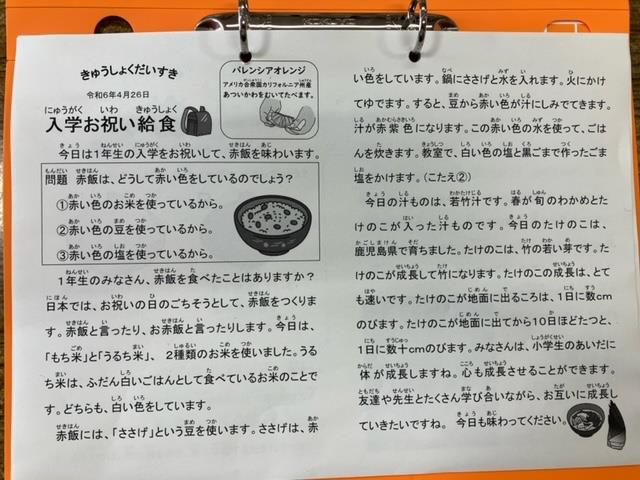 きゅうしょくだいすき
令和6年4月26日
入学お祝い給食
バレンシアオレンジ
アメリカ合衆国カリフォルニア州産
あついかわをむいてたべます。
今日は1年生の入学をお祝いして、赤飯を味わいます。
問題 赤飯は、どうして赤い色をしているのでしょう?
①赤い色のお米を使っているから。
②赤い色の豆を使っているから。
③赤い色の塩を使っているから。
1年生のみなさん、赤飯を食べたことはありますか?
日本では、お祝いの日のごちそうとして、赤飯をつくりま
す。赤飯と言ったり、お赤飯と言ったりします。今日は、
「もち米」と「うるち米」、 2種類のお米を使いました。うる
ち米は、ふだん白いごはんとして食べているお米のことで
す。どちらも、白い色をしています。
赤飯には、「ささげ」という豆を使います。ささげは、赤
い色をしています。鍋にささげと水を入れます。火にかけ
てゆでます。すると、豆から赤い色が汁にしみでてきます。
汁が赤紫色になります。この赤い色の水を使って、ごは
んを炊きます。教室で、白い色の塩と黒ごまで作ったごま
塩をかけます。(こたえ②)
今日の汁ものは、若竹汁です。春が旬のわかめとた
けのこが入った汁ものです。今日のたけのこは、
鹿児島県で育ちました。たけのこは、竹の若い芽です。た
けのこが成長して竹になります。たけのこの成長は、とて
も速いです。たけのこが地面に出るころは、1日に数cm
のびます。たけのこが地面に出てから10日ほどたつと、
1日に数十cmのびます。みなさんは、小学生のあいだに
体が成長しますね。心も成長させることができます。
友達や先生とたくさん学び合いながら、お互いに成長し
ていきたいですね。 今日も味わってください。